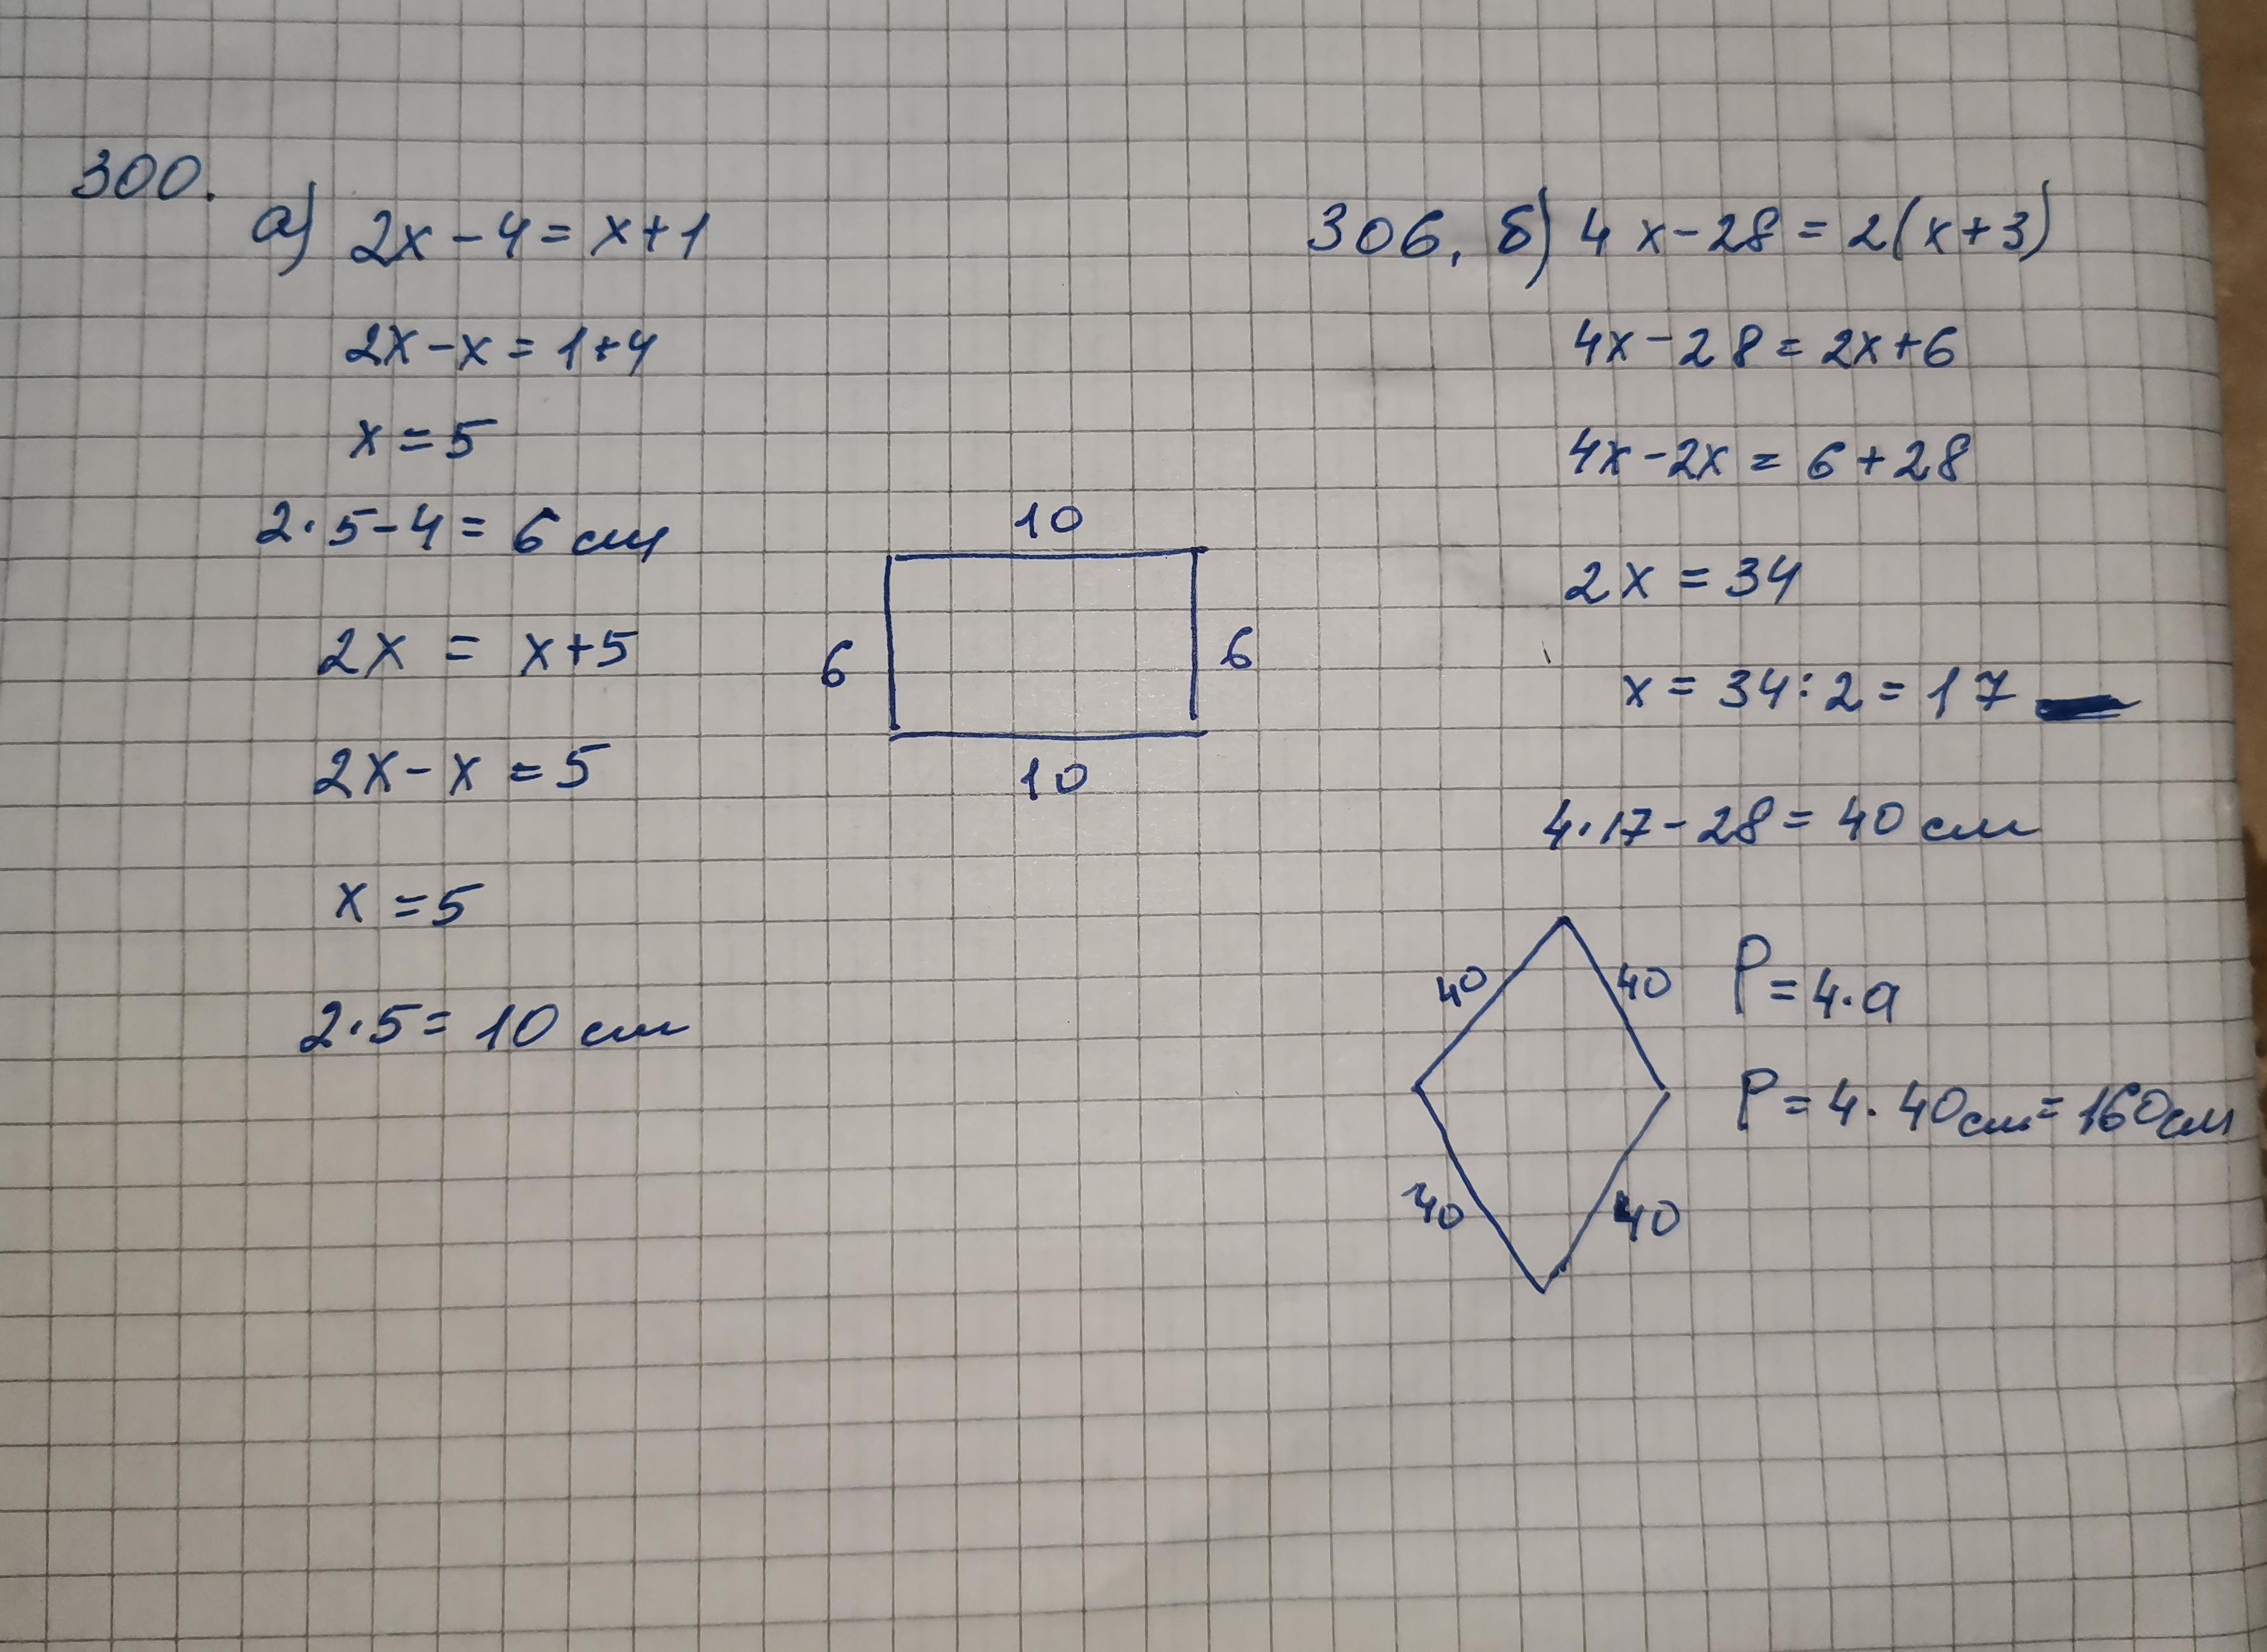 300.
а) 2x - 4 = x + 1
2x - x = 1 + 4
x = 5
2 · 5 - 4 = 6 см
2x = x + 5
2x - x = 5
x = 5
2 · 5 = 10 см
10
6
6
10
306. б) 4x - 28 = 2(x + 3)
4x - 28 = 2x + 6
4x - 2x = 6 + 28
2x = 34
x = 34 : 2 = 17
4 · 17 - 28 = 40 см
40
40
40
40
P = 4 · a
P = 4 · 40 см = 160 см